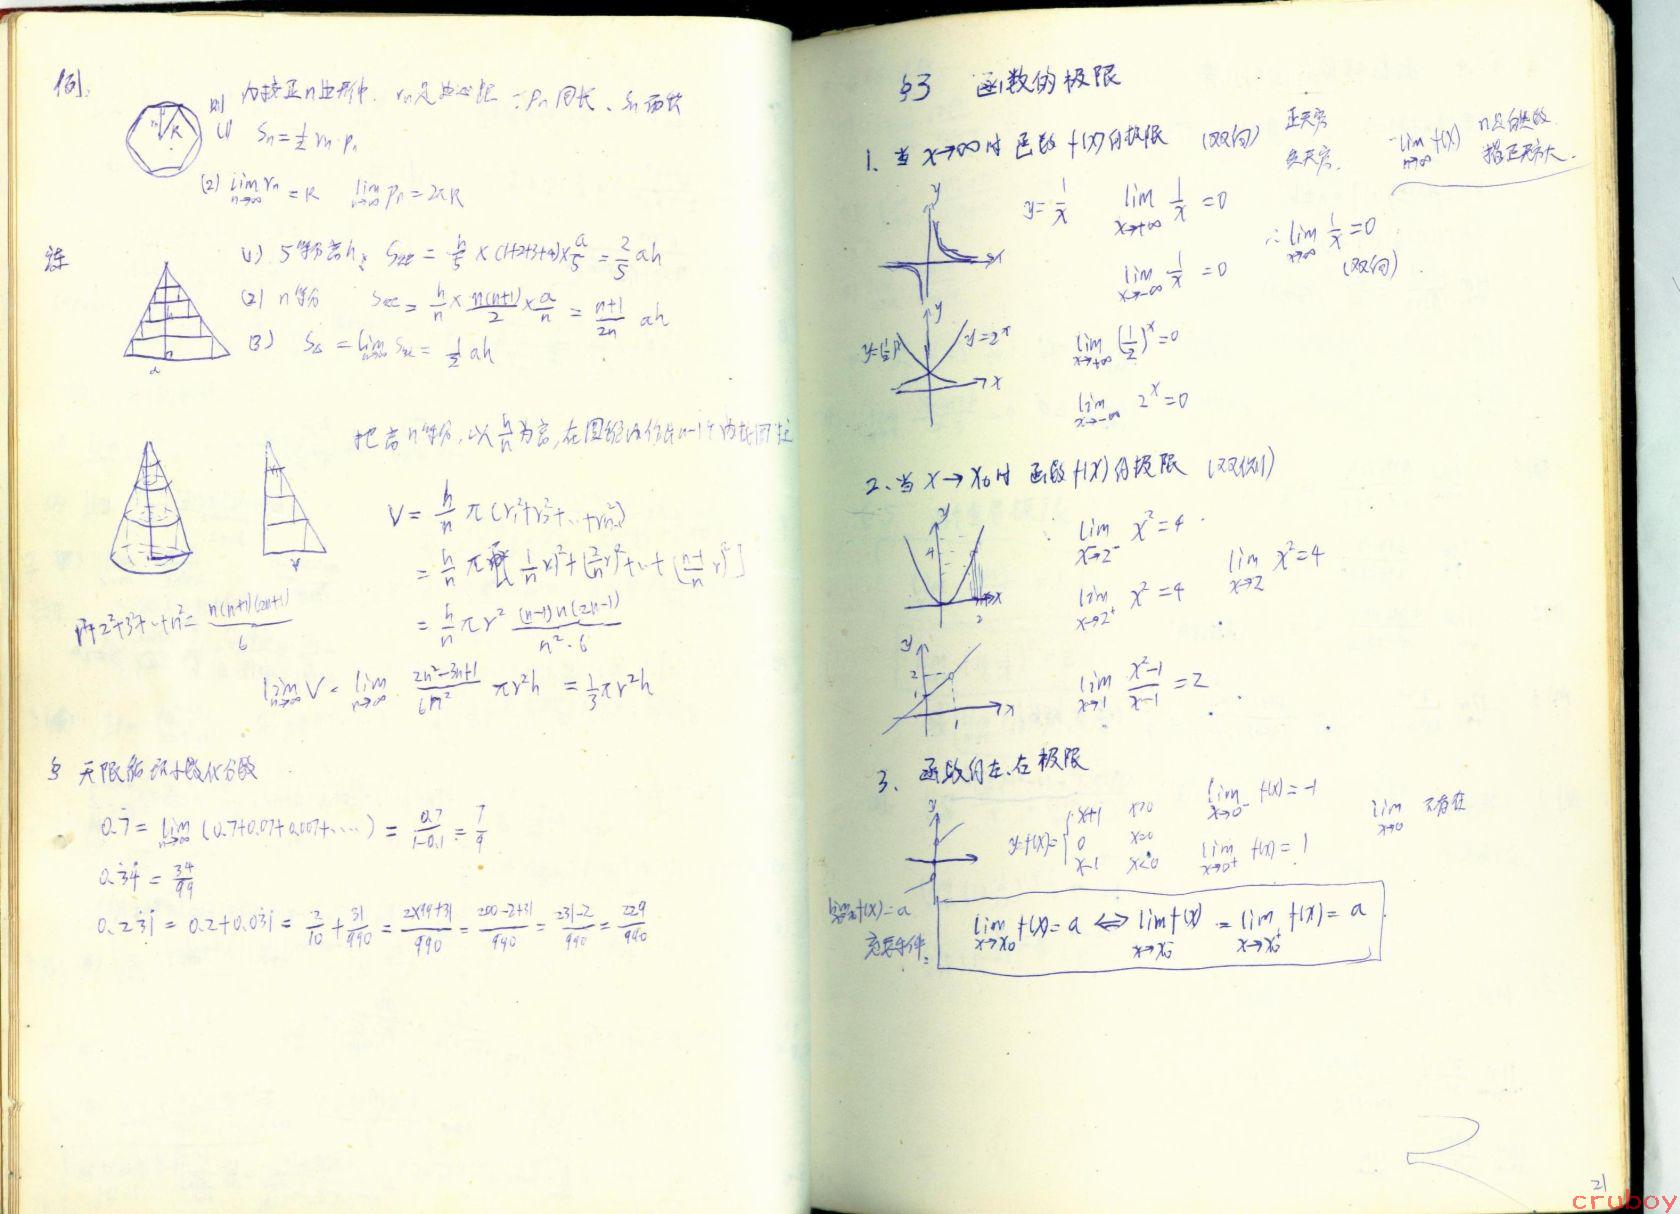 例:
内接正n边形中. rn是边心距 pn周长、Sn面积
则
(1) Sn=½rn·pn
(2) lim n→∞ rn = R   lim n→∞ pn=2πR
练
(1) 5等分高h, S = h/5 × (1+2+3+4)× a/5 = 2/5 ah
(2) n等分 S = h/n × n(n+1)/2 × a/n = n+1/2n ah
(3) S△ = lim n→∞ S = ½ ah
a
把高n等分, 以 h/n 为高, 在圆锥内作n-1个内接圆柱
V = h/n π(r₁²+r₂²+…+rn-1²)
= h/n π[(1/n r)²+(2/n r)²+…+(n-1/n r)²]
1²+2²+3²+…+n²= n(n+1)(2n+1)/6
= h/n πr² (n-1)n(2n-1)/n²·6
lim n→∞ V = lim n→∞ 2n²-3n+1/6n² πr²h = 1/3 πr²h
§ 无限循环小数化分数
0.7̇ = lim n→∞ (0.7+0.07+0.007+…) = 0.7/1-0.1 = 7/9
0.3̇4̇ = 34/99
0.23̇1̇ = 0.2+0.03̇1̇ = 2/10 + 31/990 = 2×99+31/990 = 200-2+31/990 = 231-2/990 = 229/990
§3 函数的极限
1. 当 x→∞时 函数 f(x)的极限 (双向) 正无穷 负无穷. lim n→∞ f(x) n是自然数. 指正无穷大.
y= 1/x   lim x→+∞ 1/x = 0
lim x→-∞ 1/x = 0
∴ lim x→∞ 1/x = 0 (双向)
y=(½)ˣ   y=2ˣ   lim x→+∞ (1/2)ˣ=0
lim x→-∞ 2ˣ=0
2. 当 x→x₀时 函数f(x)的极限 (双侧)
lim x→2⁻ x²=4
lim x→2⁺ x²=4   lim x→2 x²=4
lim x→1 x²-1/x-1 = 2
3. 函数的左、右极限
y=f(x)= { x+1 x>0
0 x=0
x-1 x<0
lim x→0⁻ f(x)=-1
lim x→0⁺ f(x)=1
lim x→0 不存在
lim x→x₀ f(x)=a
充要条件:
lim x→x₀ f(x)=a ⟺ lim x→x₀⁻ f(x) = lim x→x₀⁺ f(x)= a
21
cruboy